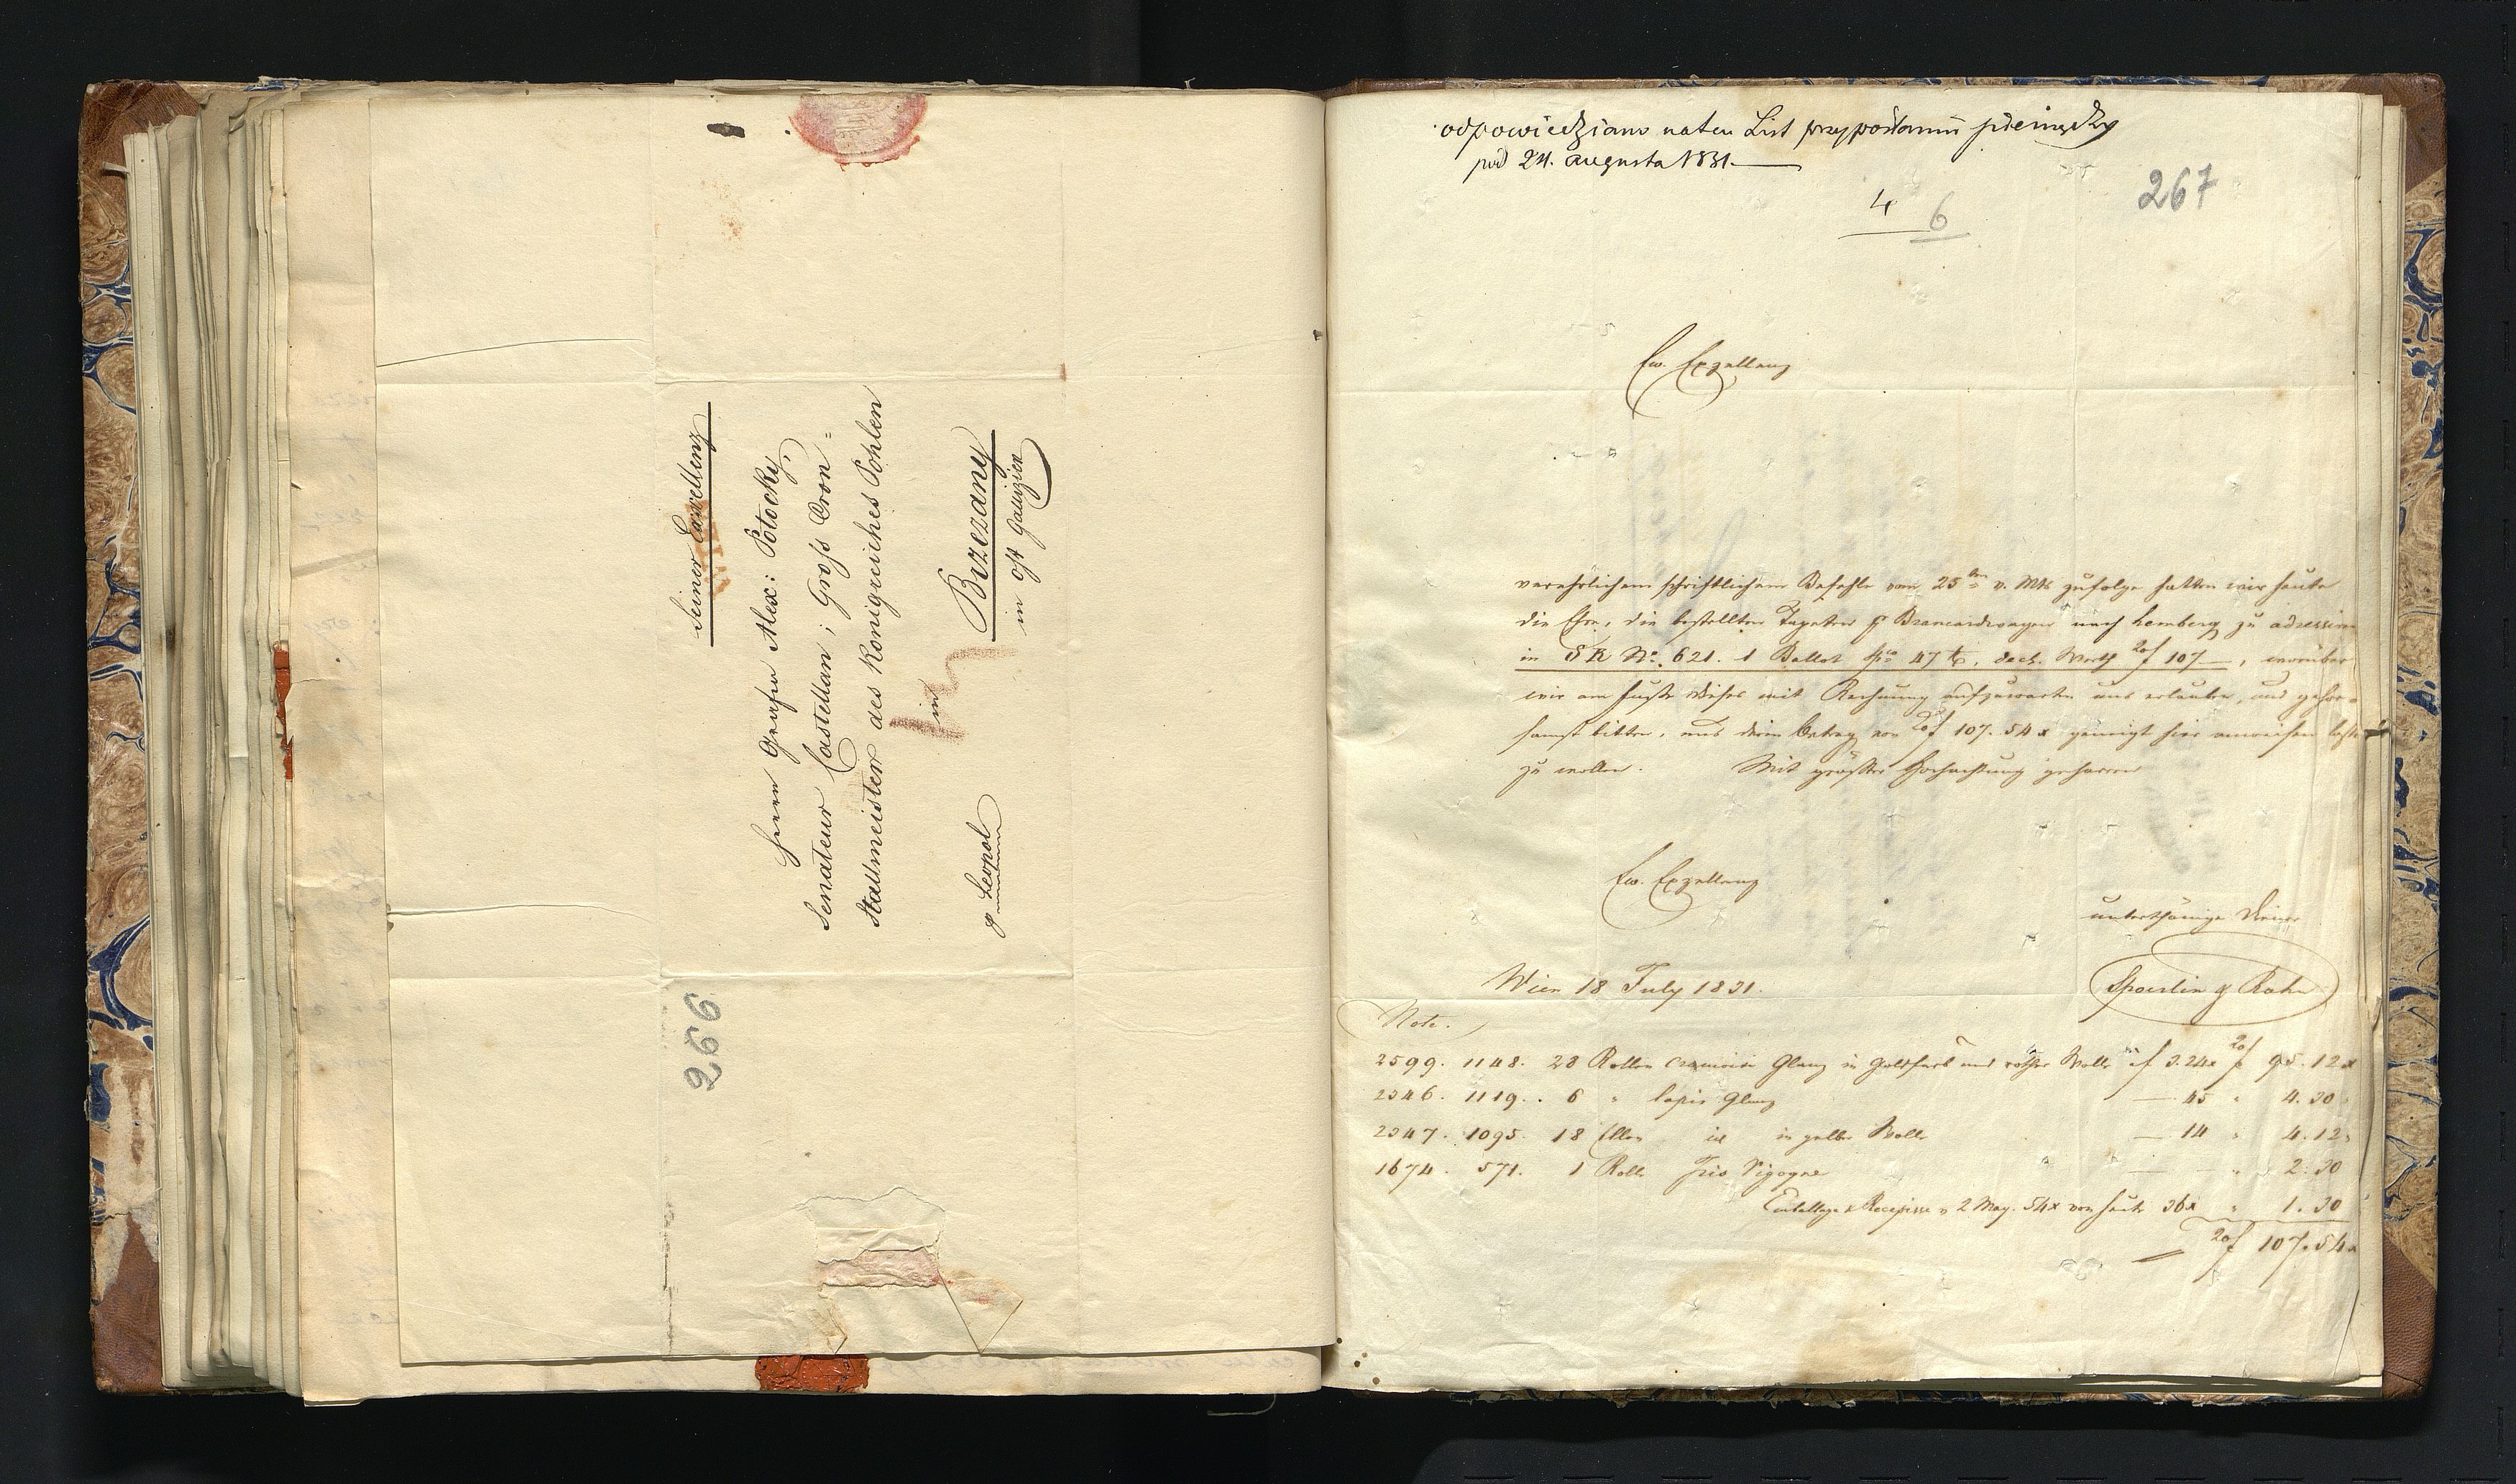 Seiner Excellenz
Herrn Grafen Alex: Potocky,
Senateur Castellan; Gross Cron=
Stallmeister des Königreiches Pohlen
in
Brzezany
in Ost Galizien
p Leopol
266
odpowiedziano na ten List przy posłaniu pieniędzy
pod 24. Augusta 1831.
4 6
267
Ew. Exzellenz
verehrlichem schriftlichem Befehle vom 25ten v. Mts zufolge hatten wir heute
die Ehre, die bestellten Tapeten p Brancardwagen nach Lemberg zu adressiren
in SR No. 621. 1 Ballot Spco 47 ℔, decl. Werth 20f 107 —, worüber
wir am Fusse dieses mit Rechnung aufzuwarten uns erlauben, und gehor-
samst bitten, uns deren Betrag von 20f 107. 54 x geneigt hier anweisen lassen
zu wollen. Mit grösster Hochachtung geharren
Ew. Exzellenz
unterthänige Diener
Spoerlin & Rahn
Wien 18 July 1831.
Nota.
2599. 1148. 28 Rollen cramoisi Glanz in Goldfarb und rother Wolle a f 3.24x 20f 95.12x
2346. 1119. 6 " lapis Glanz — 45 " 4.30
2347. 1095. 18 Ellen id in gelber Wolle — 14 " 4.12
1674. 571. 1 Rolle Iris Vigogne — " 2.30
Emballage & Recepisse v 2 May. 54x von heute 36x " 1.30
20f 107.54x